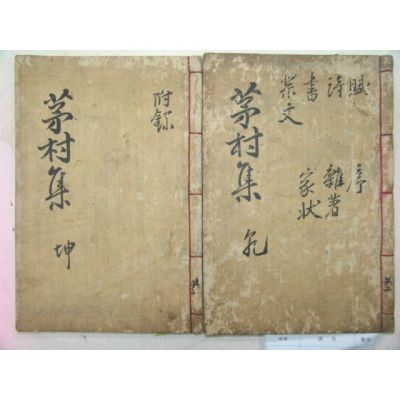 賦 序
詩 雜著
書 家狀
祭文
茅村集 乾
共二
附錄
茅村集 坤
共二